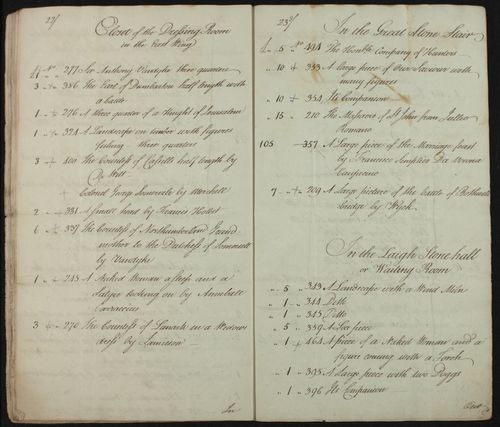 Closet of the Dressing Room
in the East Wing
277 Sir Anthony Vandyke three quarters
3 386 The Earl of Dumbarton half length with
a battle
1 276 A three quarter of a Knight of Jerusalem
1 324 A Landscape on timber with figures
fishing three quarters
3 400 The Countess of Cassills half length by
Colonel George by
2 331 A small head by Francis
6 327 The Countess of Northumberland Grand
mother to the Dutchess of Sommersett
by Vandyke
1 245 A Naked Woman asleep and a
Satyr looking on by Annibale
3 270 The Countess of Lanark in a Widows
dress by Jamieson
In
In the Great Stone Stair
5 494 The Honble Company of Hunters
10 353 A large piece of Our Saviour with
many figures
10 354 Its Companion
15 210 The of St John from Julio
Romano
105 357 A Large piece of the Marriage feast
by Francesco Da Verona
7 209 A Large picture of the battle of Bothwell
bridge by Wyck
In the Laigh Stone hall
or Waiting Room
5 343 A Landscape with a Wind Miln
1 344 Ditto
1 345 Ditto
5 359 A Sea piece
1 464 A piece of a Naked Woman and a
figure coming with a Torch
1 395 A Large piece with two Doggs
1 396 Its Companion